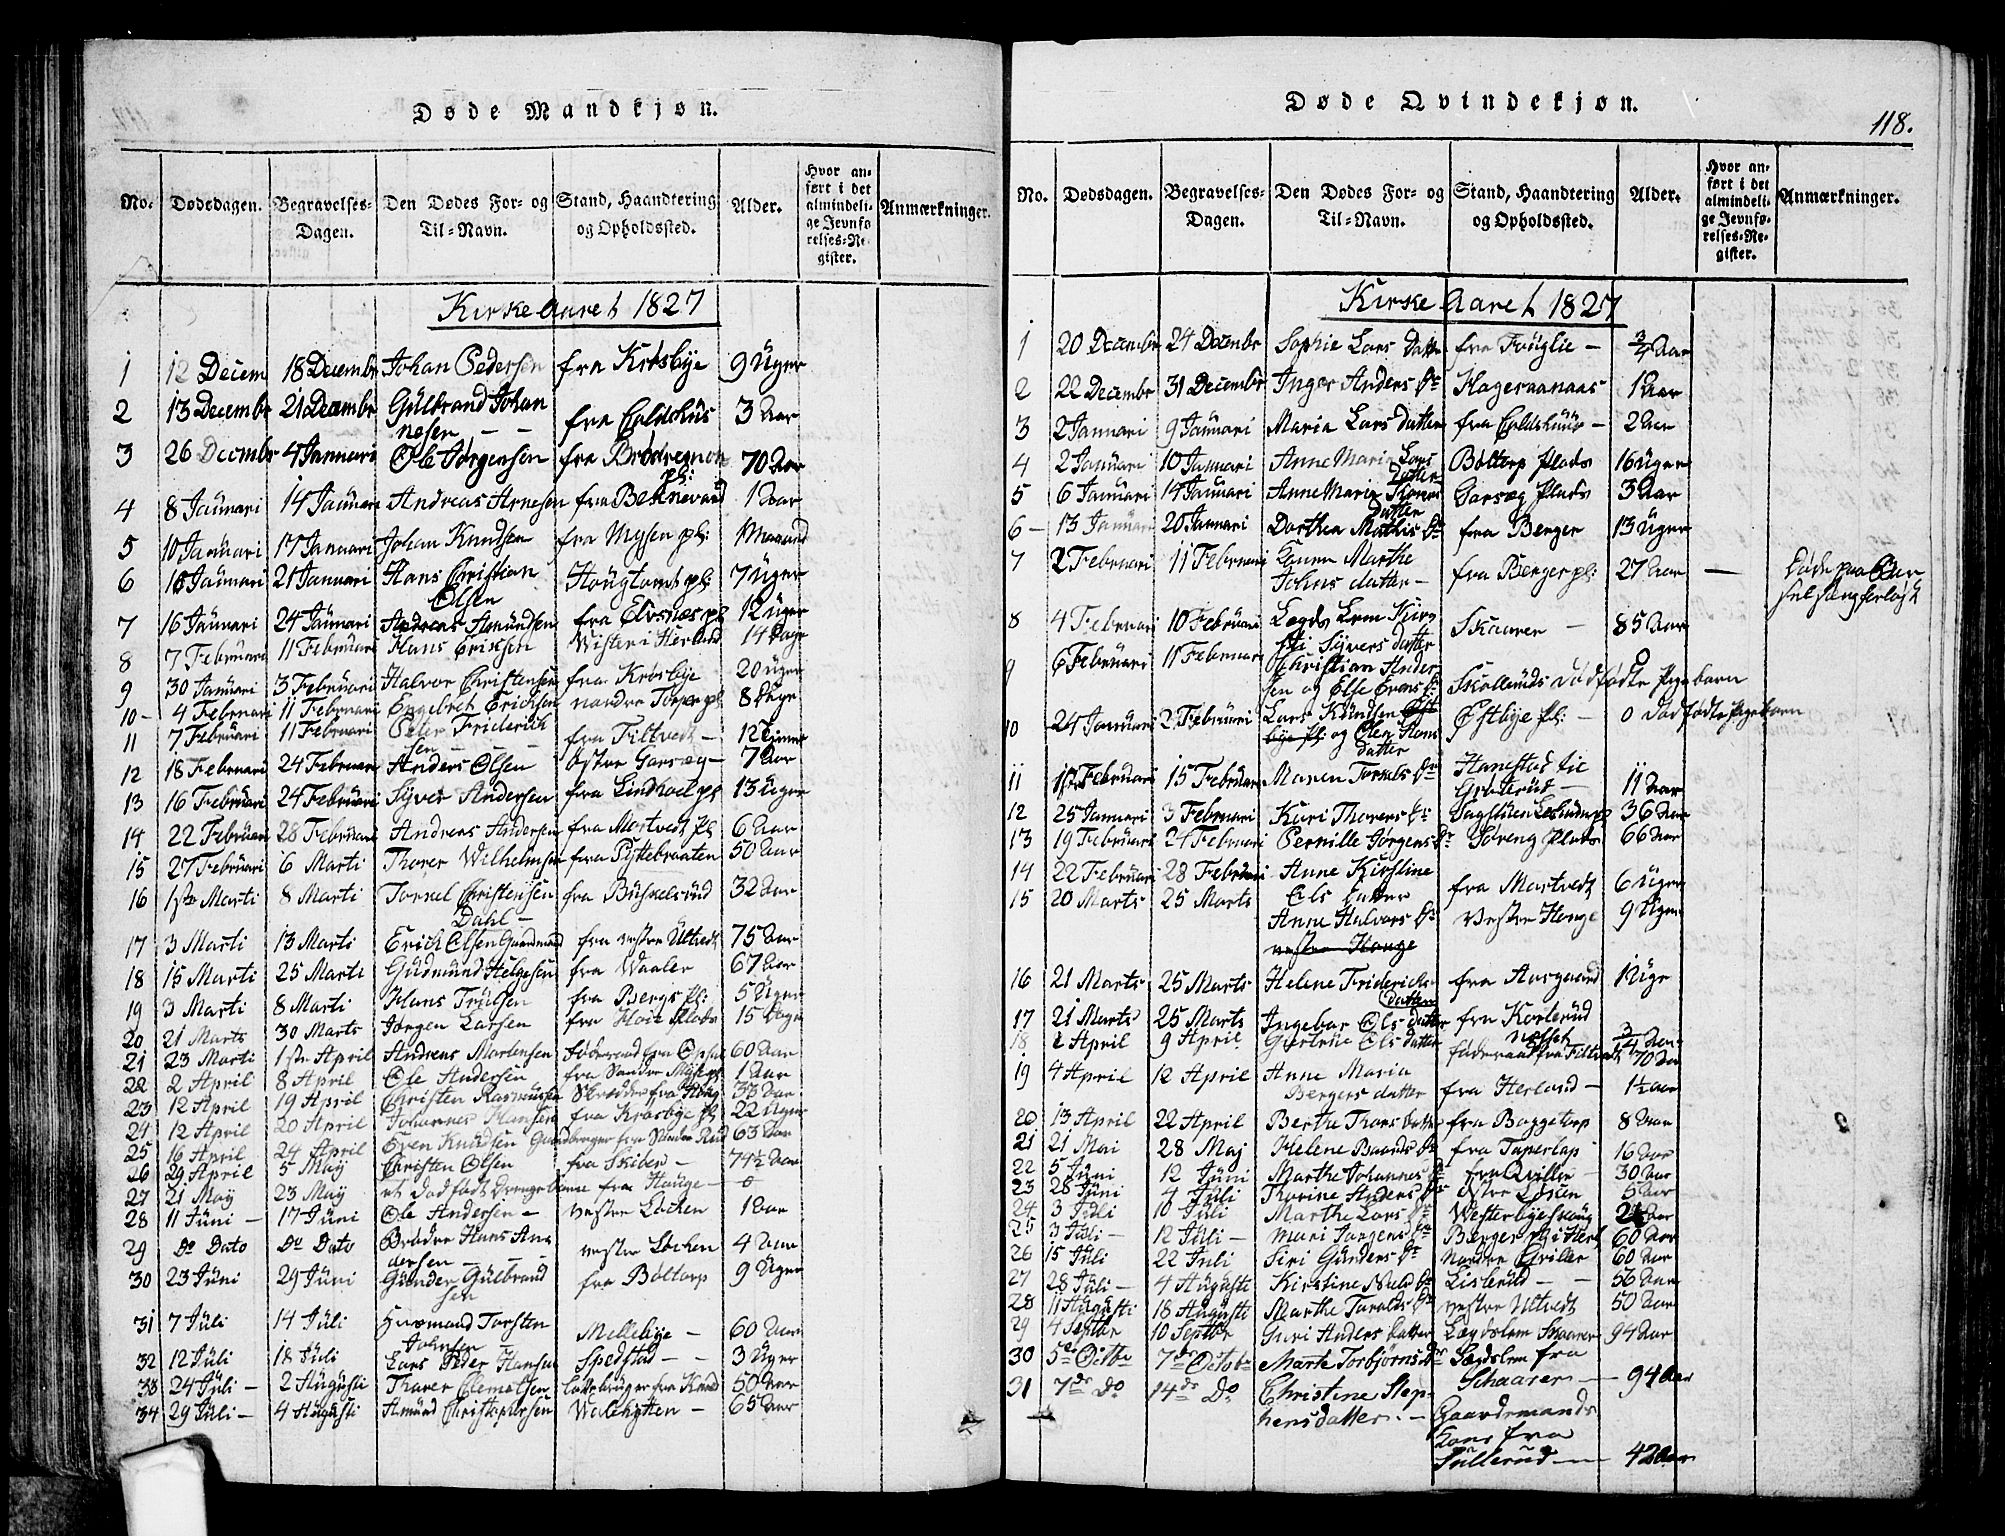 Døde Mandkjøn.
No. Dødedagen. Begravelses-Dagen. Den Dødes For- og Til-Navn. Stand, Haandtering og Opholdssted. Alder. Hvor anført i det almindelige Jevnførelses-Register. Anmærkninger.
Kirke Aaret 1827
1 12 Decem 18 Decembr Johan Pedersen fra Krosbye 9 Uger
2 13 Decembr 21 Decembr Gulbrand Johan
nesen — — fra Coldshus 3 Aar
3 26 Decembr 4 Januari Ole Jørgensen fra 70 Aar
4 8 Januari 14 Januari Andreas Arnesen fra 1 Aar
5 10 Januari 17 Januari Johan Knudsen fra Mysen pl: 1 Maaned
6 16 Januari 21 Januari Hans Christian
Olsen 7 Uger
7 16 Januari 24 Januari Andreas Amundsen fra Elvsnes pl 12 Uger
8 7 Februari 11 Februari Hans Ericksen Wister i Herland 14 Dage
9 30 Januari 3 Februari Halvor Christensen fra Krosbye 20 Uger
10 4 Februari 11 Februari Engebret Erichsen nordre Torper pl 8 Dage
11 7 Februari 11 Februari Peter Friderich
sen — fra Filtvedt — 12 Timer
12 18 Februari 24 Februari Anders Olsen østre Garseg — 7 Aar
13 16 Februari 24 Februari Syver Andersen fra Lindhoel pl 13 Uger
14 22 Februari 28 Februari Andreas Andersen fra Mortvedt pl 6 Aar
15 27 Februari 6 Marti Thorer Wilhelmsen fra Pyttebraaten 50 Aar
16 1ste Marti 8 Marti Torkel Christensen
Dahl — fra 32 Aar
17 3 Marti 13 Marti Erich Olsen Gaardmand fra vestre Ultvedt 75 Aar
18 15 Marti 25 Marti Gudmund Helgesen fra Waaler 67 Aar
19 3 Marti 8 Marti Hans Trulsen fra Bergs pl: 5 Uger
20 21 Marts 30 Marts Jørgen Larsen fra Plads 15 Dage
21 23 Marti 1ste April Andreas Mortensen Føderaad fra 60 Aar
22 2 April 8 April Ole Andersen fra Søndre Mysen pl 1 Aar
23 12 April 19 April Christen Rasmussen Skrædder fra Houg 33 Aar
24 12 April 20 April Johannes Hansen fra Krosbye pl 22 Uger
25 16 April 24 April Even Knudsen Gaardbruger fra Søndre Rud 63 Aar
26 29 April 5 May Christen Olsen fra Skiben — 74½ Aar
27 21 May 23 May et Dødfødt Drengebarn fra Houge — 0
28 11 Juni — 17 Juni Ole Andersen — vestre Løchen 1 Aar
29 Do Dato Do Dato Brødre Hans An
dersen — vestre Løchen 4 Aar
30 23 Juni 29 Juni Gunder Gulbrand
sen fra Bøltorp 9 Uger
31 7 Juli 14 Juli Husmand Torsten
Johnsen — Mellebye — 60 Aar
32 12 Juli 18 Juli Lars Peder Hansen Spedstad — 3 Uger
33 24 Juli — 2 Augusti Thorer Clemetsen fra 50 Aar
34 29 Juli — 4 Augusti Amund Christophersen — 65 Aar
Døde Qvindekjøn.
118.
No. Dødsdagen. Begravelses-Dagen. Den Dødes For- og Til-Navn. Stand, Haandtering og Opholdssted. Alder. Hvor anført i det almindelige Jevnførelses-Register. Anmærkninger.
Kirke Aaret 1827
1 20 Decembr 24 Decembr Sophie Lars Datter fra Fouglie — ¾ Aar
2 22 Decembr 31 Decembr Inger Anders Dr Hageraanaas 1 Aar
3 2 Januari 9 Januari Maria Lars Datter fra Coldshuus — 2 Aar
4 2 Januari 10 Januari Anne Maria Lars
Datter Bøltorp Plads 16 Uger
5 6 Januari 14 Januari Anne Maria
Datter Garseg Plads 3 Aar
6 — 13 Januari 20 Januari Dorthea Mathis Dr fra Berger 13 Uger
7 2 Februari 11 Februari Marthe
Johns datter — fra Berger pl: 27 Aar — Døde paa
8 4 Februari 10 Februari Legds Lem Kir
sti Syvers datter Skaarer — 85 Aar
9 6 Februari 11 Februari Christian Ander
sen og Else Evens Dr Skolleruds Dødfødte Pigebarn 0
10 24 Januari 2 Februari Lars Knudsen Øst
bye pl: og Olea Hans
datter Østbye pl: — 0 Dødfødte Pigebarn
11 Februari 15 Februari Maren Torkels Dr Hanestad
— 11 Aar
12 25 Januari 3 Februari Kari Thorers Dr 36 Aar
13 19 Februari 24 Februari Pernille Jørgens Dr Plads 66 Aar
14 22 Februari 28 Februari Anne Kirstine
Ols Datter fra Mortvedt 6 Uger
15 20 Marts 25 Marts Anne Halvors Dr
vestre Houge Vestre Houge 9 Uger
16 21 Marts 25 Marts Helene Friderichs
Datter fra Aasgaard 1 Uge
17 21 Marts 25 Marts Ingebor Ols datter fra Korterud
¾ Aar
18 2 April 9 April Gjertrue Ols datter føderaad fra Filtvedt 70 Aar
19 4 April 12 April Anne Maria
Bergers datter fra Herland — 1½ Aar
20 13 April 22 April Berthe Thors datter fra Baggetorp 8 Aar
21 21 Mai 28 Maj Helene Baards Dr fra Taperlap 16 Aar
22 5 Juni 12 Juni Marthe Johannes Dr fra Qviller — 30 Aar
23 28 Juni 4 Juli Thorine Anders Dr østre Løsen 5 Aar
24 3 Juli 10 Juli Marthe Lars Dr Westerbye skoug Aar
25 3 Juli — 12 Juli — Mari Jørgens Dr Berger pl i Herl 60 Aar
26 15 Juli 22 Juli Siri Gunders Dr Nordre Griller 60 Aar
27 28 Juli — 4 Augusti Kirstine Dr Lislerud — — 56 Aar
28 11 Augusti 18 Augusti Marthe Taralds Dr vestre Ultvedt 50 Aar
29 4 Septbr 10 Septbr Guri Anders Datter Lægdslem Skaarer 94 Aar
30 5te Octbr 7de Octobr Marte Torbjørns Dr Lægdslem fra
Schaarer — — 94 Aar
31 7de Do 14de Do Christine Step-
hensdatter. — Gaardmands
Kone fra
Sullerud — — 42 Aar